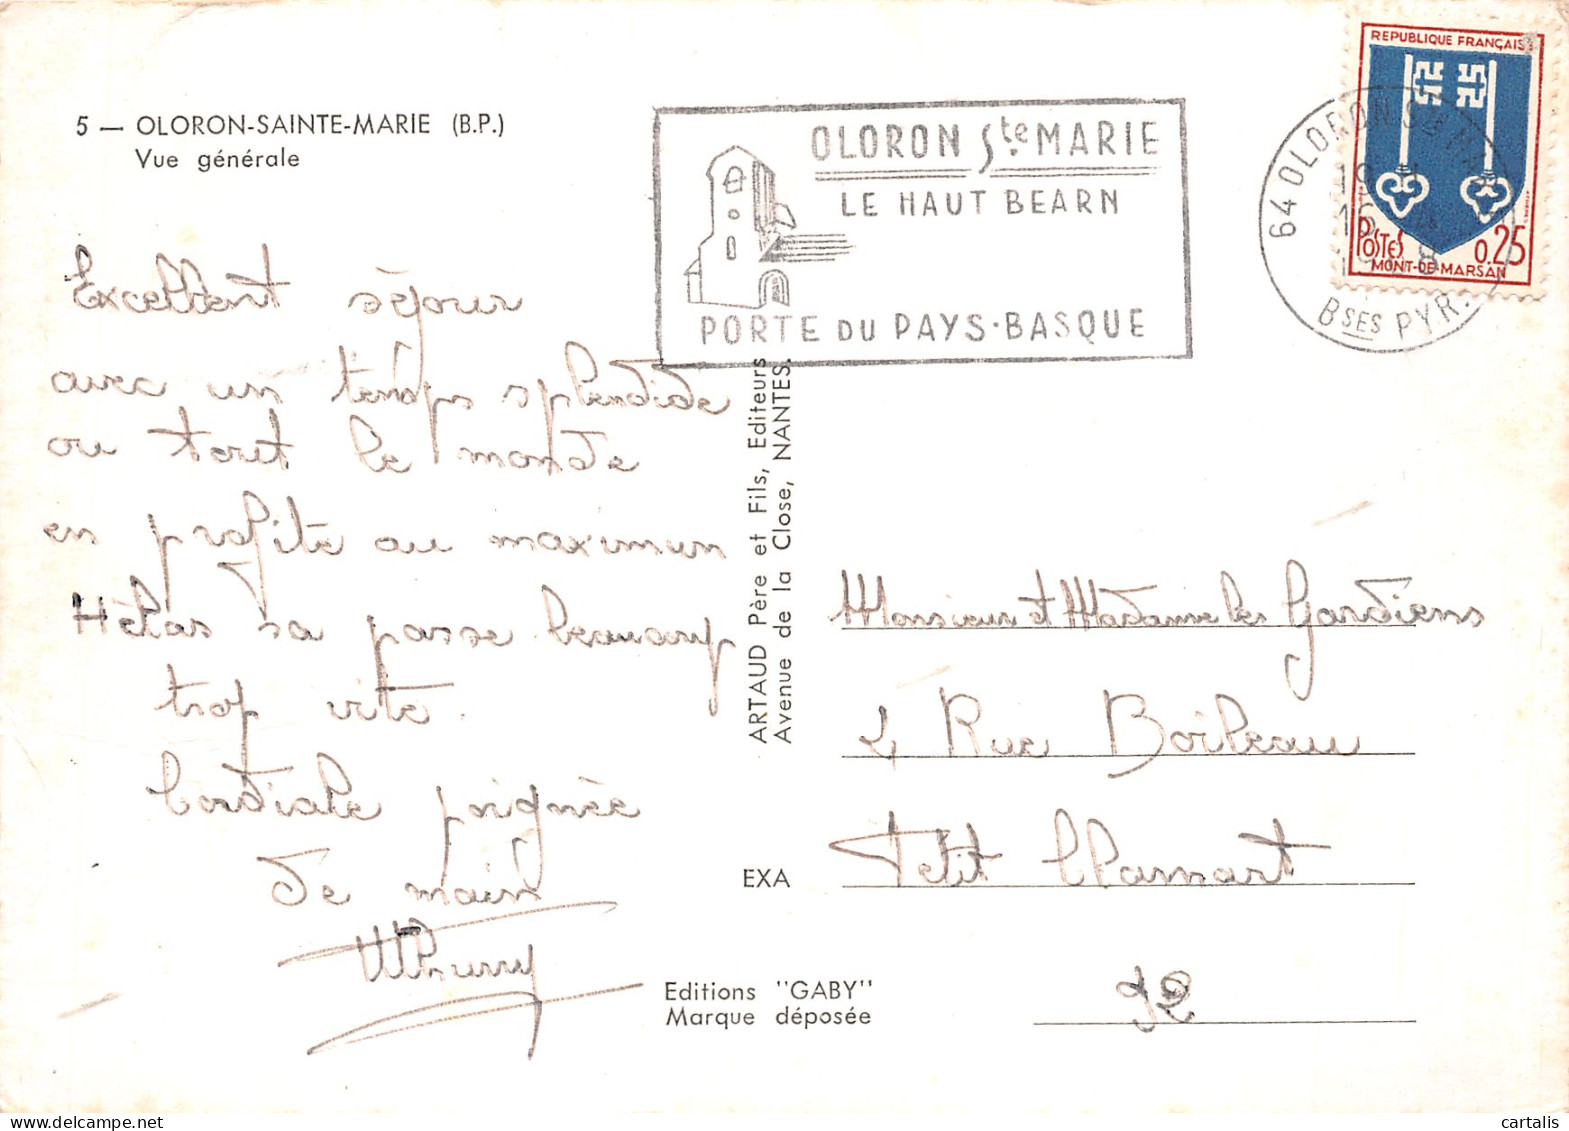 5 — OLORON-SAINTE-MARIE (B.P.)
Vue générale
OLORON Ste MARIE
LE HAUT BEARN
PORTE DU PAYS-BASQUE
REPUBLIQUE FRANÇAISE
POSTES 0.25
MONT-DE-MARSAN
64 OLORON Ste MARIE
Bses PYR.
Excellent séjour
avec un temps splendide
ou tout le monde
en profite au maximum
Hèlas sa passe beaucoup
trop vite.
Cordiale poignée
de main
Thurry
ARTAUD Père et Fils, Editeurs
Avenue de la Close, NANTES.
Monsieur et Madame les Gardiens
4 Rue Boileau
Petit Clamart
92
EXA
Editions "GABY"
Marque déposée
cartalis
www.delcampe.net